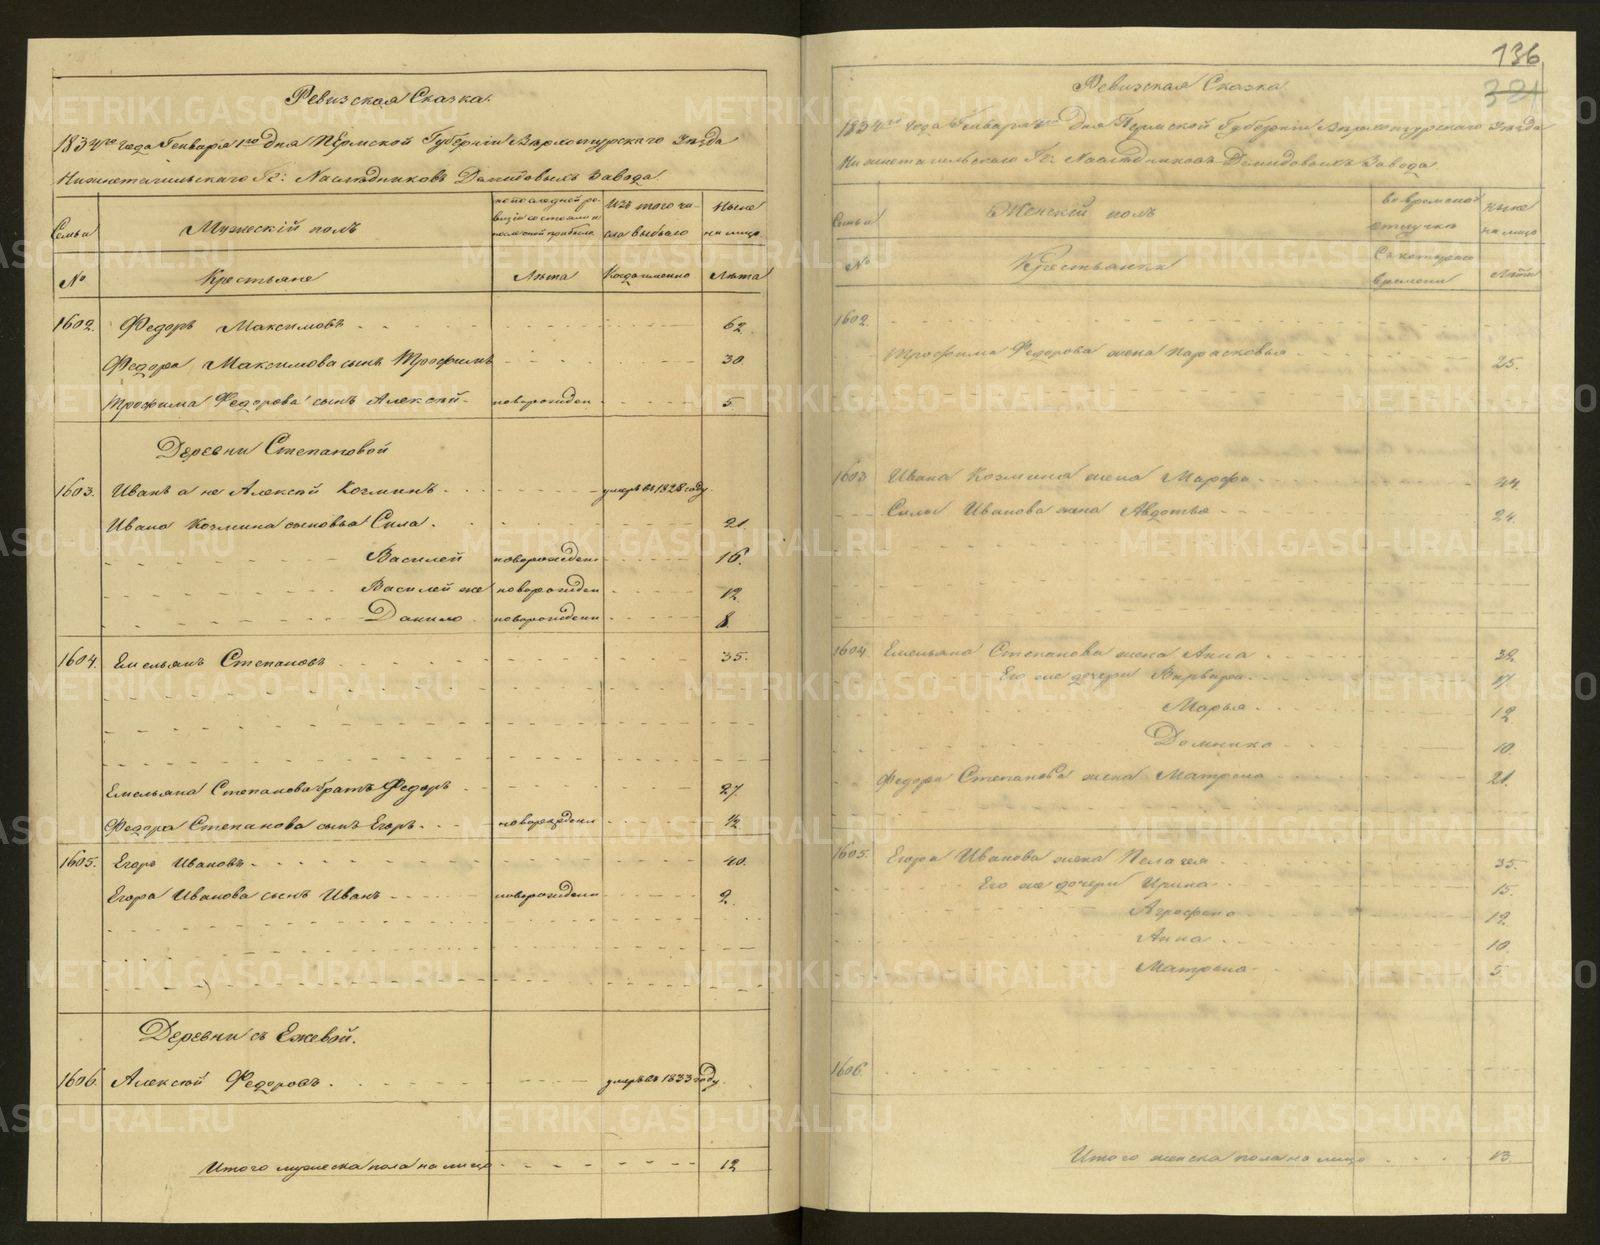 Ревизская Сказка.
1834го года Генваря 1го дня Пермской Губернiи Верхотурскаго Уезда
Нижнетагильскаго Гг: Наследниковъ Демидовыхъ Завода
Семья
Мужескiй полъ
по последней ревизiи состояло и после оной прибыло
Изъ того числа выбыло
Ныне на лицо
№
Крестьяне
Лета
Когда именно
Лета
1602. Федоръ Максимовъ 62.
Федора Максимова сынъ Трофимъ 30.
Трофима Федорова сынъ Алексей новорожден 5
Деревни Степановой
1603. Иванъ а не Алексей Козминъ умеръ въ 1828 году
Ивана Козмина сыновья Сила 21.
Василей новорожден 16.
Василей же новорожден 12
Данило новорожденн 8
1604. Емельянъ Степановъ 35.
Емельяна Степанова братъ Федоръ 27
Федора Степанова сынъ Егоръ новорожден 1/2
1605. Егоръ Ивановъ 40.
Егора Иванова сынъ Иванъ новорожденн 2
Деревни съ Ежевой.
1606. Алексей Федоровъ умеръ въ 1833 году
Итого мужеска пола на лицо 12
136
321
Ревизская Сказка
1834го года Генваря 1го дня Пермской Губернiи Верхотурскаго Уезда
Нижнетагильскаго Гг: Наследниковъ Демидовыхъ Завода
Семья
Женскiй полъ
во временной отлучке
Ныне на лицо
№
Крестьянки
Съ котораго времени
Лета
1602.
Трофима Федорова жена Парасковья 25.
1603 Ивана Козмина жена Марфа 44
Силы Иванова жена Авдотья 24
1604. Емельяна Степанова жена Анна 38
Его же дочери Варвара 17.
Марья 12
Домника 10.
Федора Степанова жена Матрена 21.
1605. Егора Иванова жена Пелагея 35.
Его же дочери Ирина 15.
Агрофена 12
Анна 10
Матрена 5
1606.
Итого женска пола на лицо 13.
METRIKI.GASO-URAL.RU